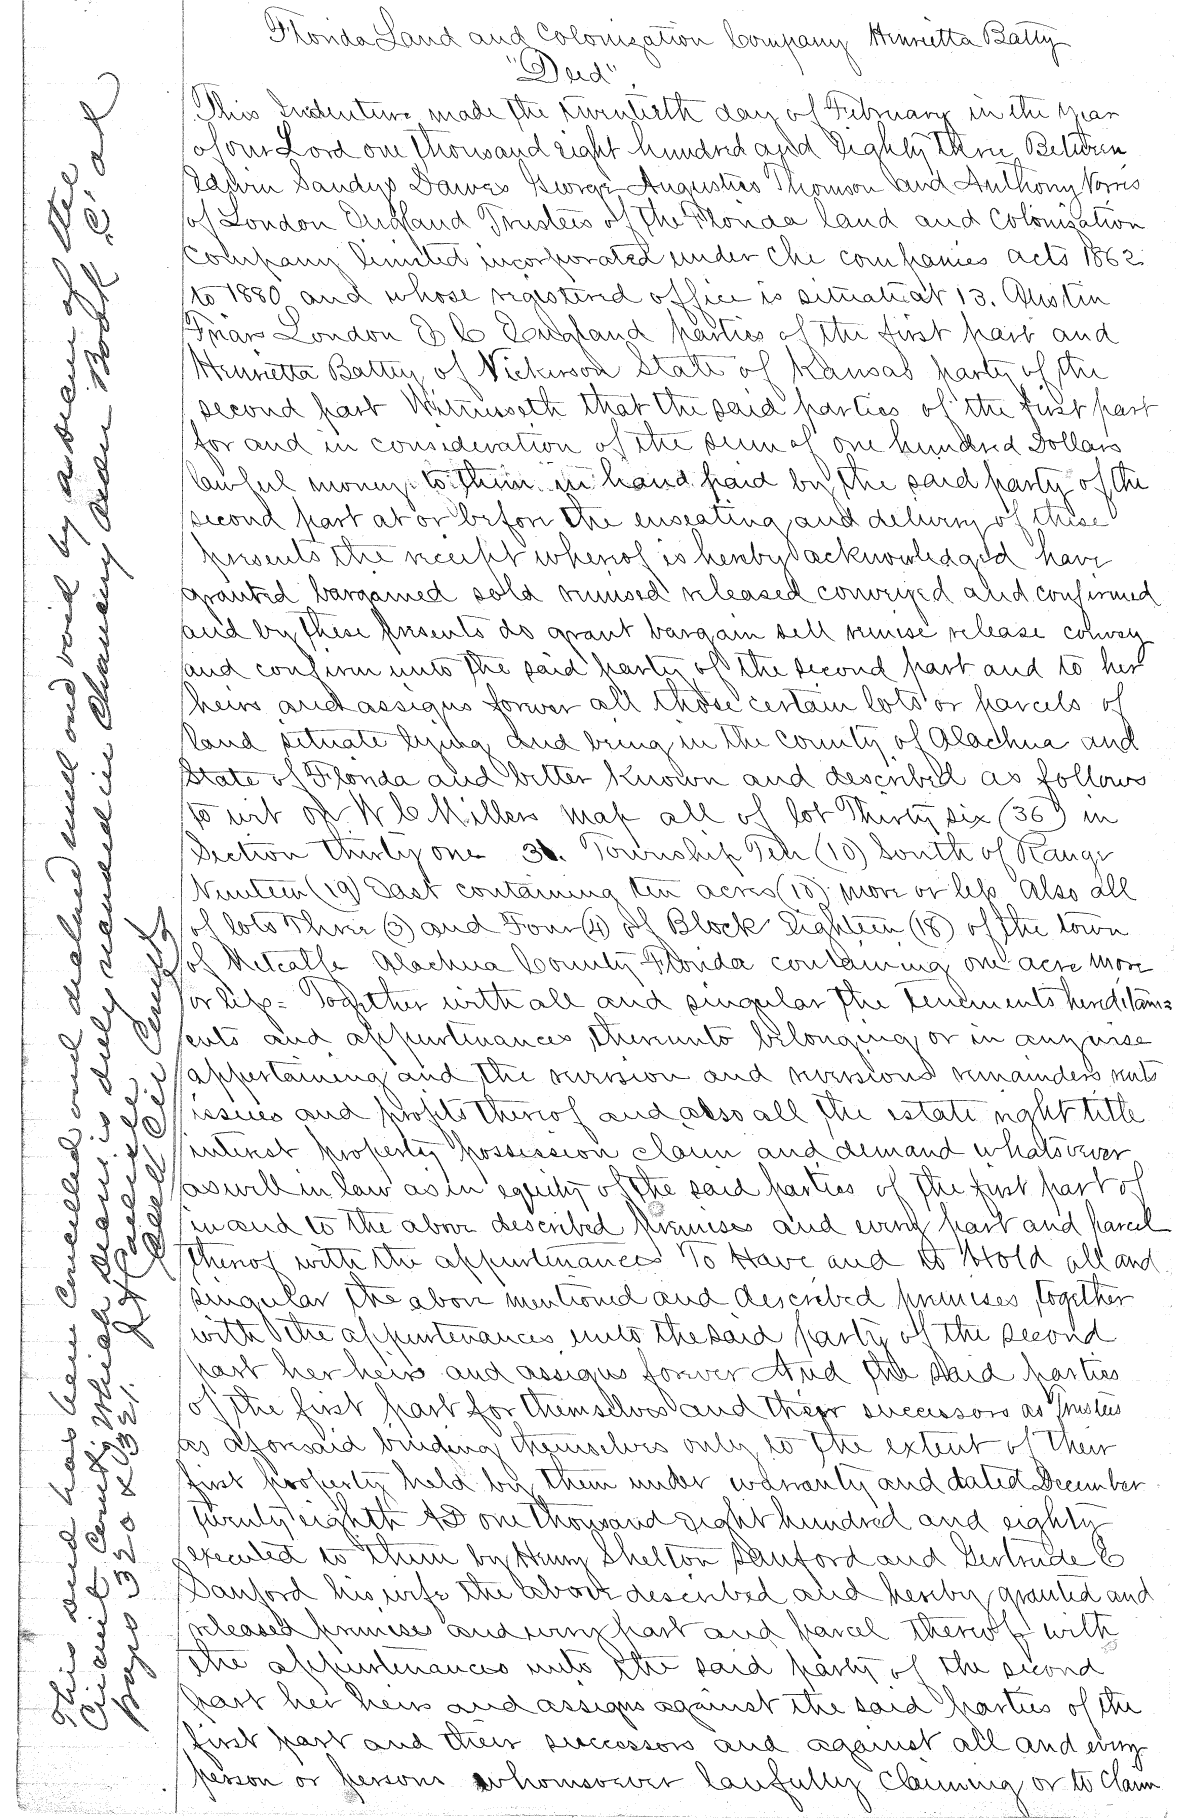 Florida Land and Colonization Company Henrietta Batty
"Deed"
This Indenture made the twentieth day of February in the year
of our Lord one thousand eight hundred and Eighty three Between
Edwin Sandys Dawes George Augustus Thomson and Anthony Norris
of London England Trustees of the Florida land and Colonization
Company limited incorporated under the companies acts 1862
to 1880 and whose registered office is situate at 13. Austin
Friars London E C England parties of the first part and
Henrietta Battey of Nickerson State of Kansas party of the
second part Witnesseth that the said parties of the first part
for and in consideration of the sum of one hundred Dollars
lawful money to them in hand paid by the said party of the
second part at or before the enseating and delivery of these
presents the receipt whereof is hereby acknowledged have
granted bargained sold remised released conveyed and confirmed
and by these presents do grant bargain sell remise release convey
and confirm unto the said party of the second part and to her
heirs and assigns forever all those certain lots or parcels of
land situate lying and being in the county of Alachua and
State of Florida and better known and described as follows
to wit on N C Millers map all of lot Thirty six (36) in
Section thirty one 31. Township Ten (10) South of Range
Nineteen (19) East containing ten acres (10) more or less Also all
of lots Three (3) and Four (4) of Block Eighteen (18) of the town
of Metcalfe Alachua County Florida containing one acre more
or less = Together with all and singular the tenements hereditam=
ents and appurtenances thereunto belonging or in anywise
appertaining and the reversion and reversions remainders rents
issues and profits thereof and also all the estate right title
interest property possession claim and demand whatsoever
as well in law as in equity of the said parties of the first part of
in and to the above described premises and every part and parcel
thereof with the appurtenances To Have and to Hold all and
singular the above mentioned and described premises together
with the appurtenances unto the said party of the second
part her heirs and assigns forever And the said parties
of the first part for themselves and their successors as Trustees
as aforesaid binding themselves only to the extent of their
first property held by them under warranty and dated December
twenty eighth AD one thousand eight hundred and eighty
executed to them by Henry Shelton Sanford and Gertrude E
Sanford his wife the above described and hereby granted and
released premises and every part and parcel thereof with
the appurtenances unto the said party of the second
part her heirs and assigns against the said parties of the
first part and their successors and against all and every
person or persons whomsoever lawfully claiming or to claim
This deed has been cancelled and declared null and void by a decree of the
Circuit Court, which decree is duly recorded in Chancery order Book "C" at
page 320 & 321.